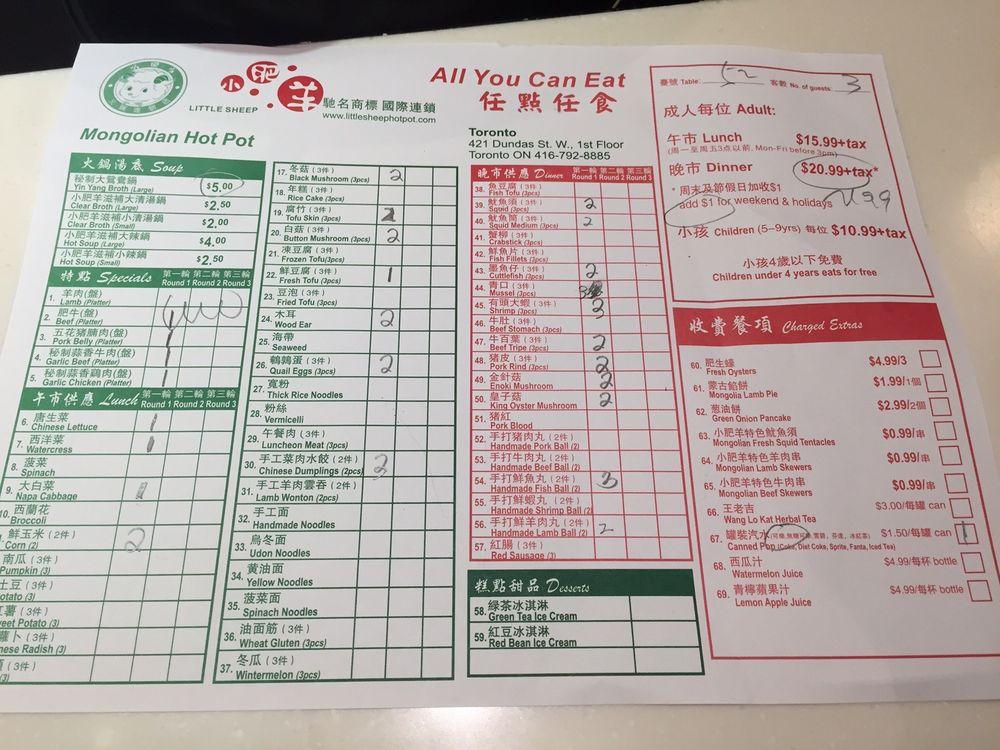 小肥羊
LITTLE SHEEP
馳名商標 國際連鎖
www.littlesheephotpot.com
Mongolian Hot Pot
All You Can Eat
任點任食
Toronto
421 Dundas St. W., 1st Floor
Toronto ON 416-792-8885
臺號 Table: 52 客數 No. of guests: 3
成人每位 Adult:
午市 Lunch $15.99+tax
(周一至周五3点以前, Mon-Fri before 3pm)
晚市 Dinner $20.99+tax*
*周末及節假日加收$1
add $1 for weekend & holidays
小孩 Children (5–9yrs) 每位 $10.99+tax
小孩4歲以下免費
Children under 4 years eats for free
火鍋湯底 Soup
秘制大鴛鴦鍋
Yin Yang Broth (Large) $5.00
小肥羊滋補大清湯鍋
Clear Broth (Large) $2.50
小肥羊滋補小清湯鍋
Clear Broth (Small) $2.00
小肥羊滋補大辣鍋
Hot Soup (Large) $4.00
小肥羊滋補小辣鍋
Hot Soup (Small) $2.50
特點 Specials 第一輪 第二輪 第三輪
Round 1 Round 2 Round 3
1. 羊肉(盤)
Lamb (Platter)
2. 肥牛(盤)
Beef (Platter)
3. 五花猪腩肉(盤)
Pork Belly (Platter)
4. 秘制蒜香牛肉(盤)
Garlic Beef (Platter)
5. 秘制蒜香鷄肉(盤)
Garlic Chicken (Platter)
午市供應 Lunch 第一輪 第二輪 第三輪
Round 1 Round 2 Round 3
6. 唐生菜 1
Chinese Lettuce
7. 西洋菜 1
Watercress
8. 菠菜
Spinach
9. 大白菜
Napa Cabbage
10. 西蘭花
Broccoli
鮮玉米 (2件) 2
Corn (2)
南瓜 (3件)
Pumpkin (3)
土豆 (3件)
otato (3)
薯 (3件)
eet Potato (3)
蘿卜 (3件)
nese Radish (3)
(3件)
(3)
17. 冬菇 (3件) 2
Black Mushroom (3pcs)
18. 年糕 (3件)
Rice Cake (3pcs)
19. 腐竹 (3件)
Tofu Skin (3pcs)
20. 白菇 (3件) 2
Button Mushroom (3pcs)
21. 凍豆腐 (3件)
Frozen Tofu(3pcs)
22. 鮮豆腐 (3件) 1
Fresh Tofu (3pcs)
23. 豆泡 (3件)
Fried Tofu (3pcs)
24. 木耳 2
Wood Ear
25. 海帶
Seaweed
26. 鵪鶉蛋 (3件) 2
Quail Eggs (3pcs)
27. 寬粉
Thick Rice Noodles
28. 粉絲
Vermicelli
29. 午餐肉 (3件)
Luncheon Meat (3pcs)
30. 手工菜肉水餃 (2件) 2
Chinese Dumplings (2pcs)
31. 手工羊肉雲吞 (2件)
Lamb Wonton (2pcs)
32. 手工面
Handmade Noodles
33. 烏冬面
Udon Noodles
34. 黄油面
Yellow Noodles
35. 菠菜面
Spinach Noodles
36. 油面筋 (3件)
Wheat Gluten (3pcs)
37. 冬瓜 (3件)
Wintermelon (3pcs)
晚市供應 Dinner 第一輪 第二輪 第三輪
Round 1 Round 2 Round 3
38. 魚豆腐 (3件)
Fish Tofu (3pcs)
39. 魷魚須 (3件) 2
Squid (3pcs)
40. 魷魚筒 (3件) 2
Squid Medium (3pcs)
41. 蟹柳 (3件)
Crabstick (3pcs)
42. 鮮魚片 (3件)
Fish Fillets (3pcs)
43. 墨魚仔 (3件) 2
Cuttlefish (3pcs)
44. 青口 (3件)
Mussel (3pcs)
45. 有頭大蝦 (3件)
Shrimp (3pcs)
46. 牛肚 (3件)
Beef Stomach (3pcs)
47. 牛百葉 (3件) 2
Beef Tripe (3pcs)
48. 猪皮 (3件) 2
Pork Rind (3pcs)
49. 金針菇 2
Enoki Mushroom
50. 皇子菇 2
King Oyster Mushroom
51. 猪紅
Pork Blood
52. 手打猪肉丸 (2件)
Handmade Pork Ball (2)
53. 手打牛肉丸 (2件)
Handmade Beef Ball (2)
54. 手打鮮魚丸 (2件) 3
Handmade Fish Ball (2)
55. 手打鮮蝦丸 (2件)
Handmade Shrimp Ball (2)
56. 手打鮮羊肉丸 (2件) 2
Handmade Lamb Ball (2)
57. 紅腸 (3件)
Red Sausage (3)
糕點甜品 Desserts
58. 綠茶冰淇淋
Green Tea Ice Cream
59. 紅豆冰淇淋
Red Bean Ice Cream
收費餐項 Charged Extras
60. 肥生蠔 $4.99/3
Fresh Oysters
61. 蒙古餡餅 $1.99/1個
Mongolia Lamb Pie
62. 葱油餅 $2.99/2個
Green Onion Pancake
63. 小肥羊特色魷魚須 $0.99/串
Mongolian Fresh Squid Tentacles
64. 小肥羊特色羊肉串 $0.99/串
Mongolian Lamb Skewers
65. 小肥羊特色牛肉串 $0.99/串
Mongolian Beef Skewers
66. 王老吉 $3.00/每罐 can
Wang Lo Kat Herbal Tea
67. 罐裝汽水 $1.50/每罐 can 1
Canned Pop (Coke, Diet Coke, Sprite, Fanta, Iced Tea)
68. 西瓜汁 $4.99/每杯 bottle
Watermelon Juice
69. 青檸蘋果汁 $4.99/每杯 bottle
Lemon Apple Juice